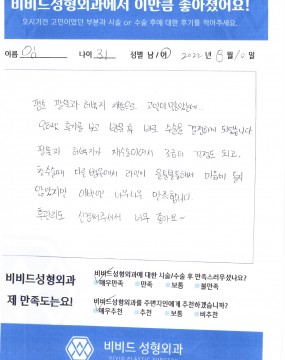 비비드성형외과에서 이만큼 좋아졌어요!
오시기전 고민이었던 부분과 시술 or 수술 후에 대한 후기를 적어주세요.
이름 나이 31 성별 남/여 2022년 8월 10일
평소 팔뚝과 허벅지 때문에 고민이 많았는데
후기를 보고 수술을 결정하게 되었습니다
팔뚝과 허벅지가 재수술이여서 걱정도 되고,
첫수술때 다른병원에서 라인이 울퉁불퉁해서 마음에 들지
않았지만 이번엔 너무너무 만족합니다.
후관리도 신경써주셔서 너무 좋아요~
비비드성형외과
제 만족도는요!
비비드성형외과에 대한 시술/수술 후 만족스러우셨나요?
매우만족 만족 보통 불만족
비비드성형외과를 주변지인에게 추천하겠습니까?
매우추천 추천 보통 비추천
비비드 성형외과
VIVID PLASTIC SURGERY